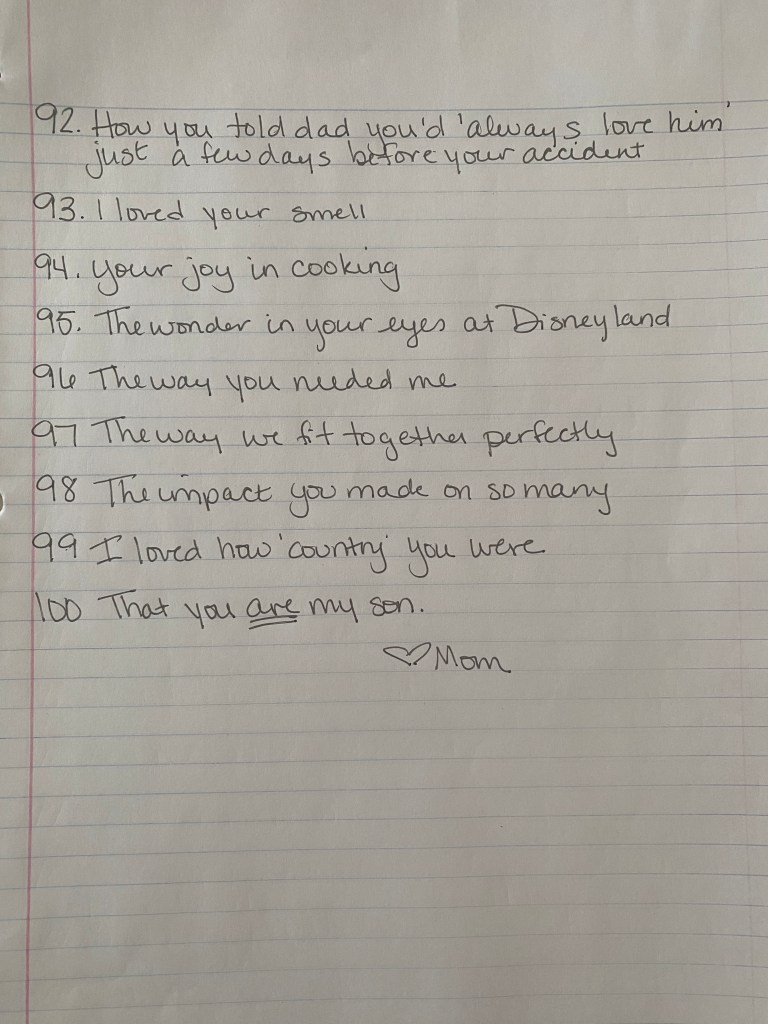 92. How you told dad you'd 'always love him'
just a few days before your accident
93. I loved your smell
94. your joy in cooking
95. The wonder in your eyes at Disneyland
96 The way you needed me
97 The way we fit together perfectly
98 The impact you made on so many
99 I loved how 'country' you were
100 That you are my son.
♡ Mom